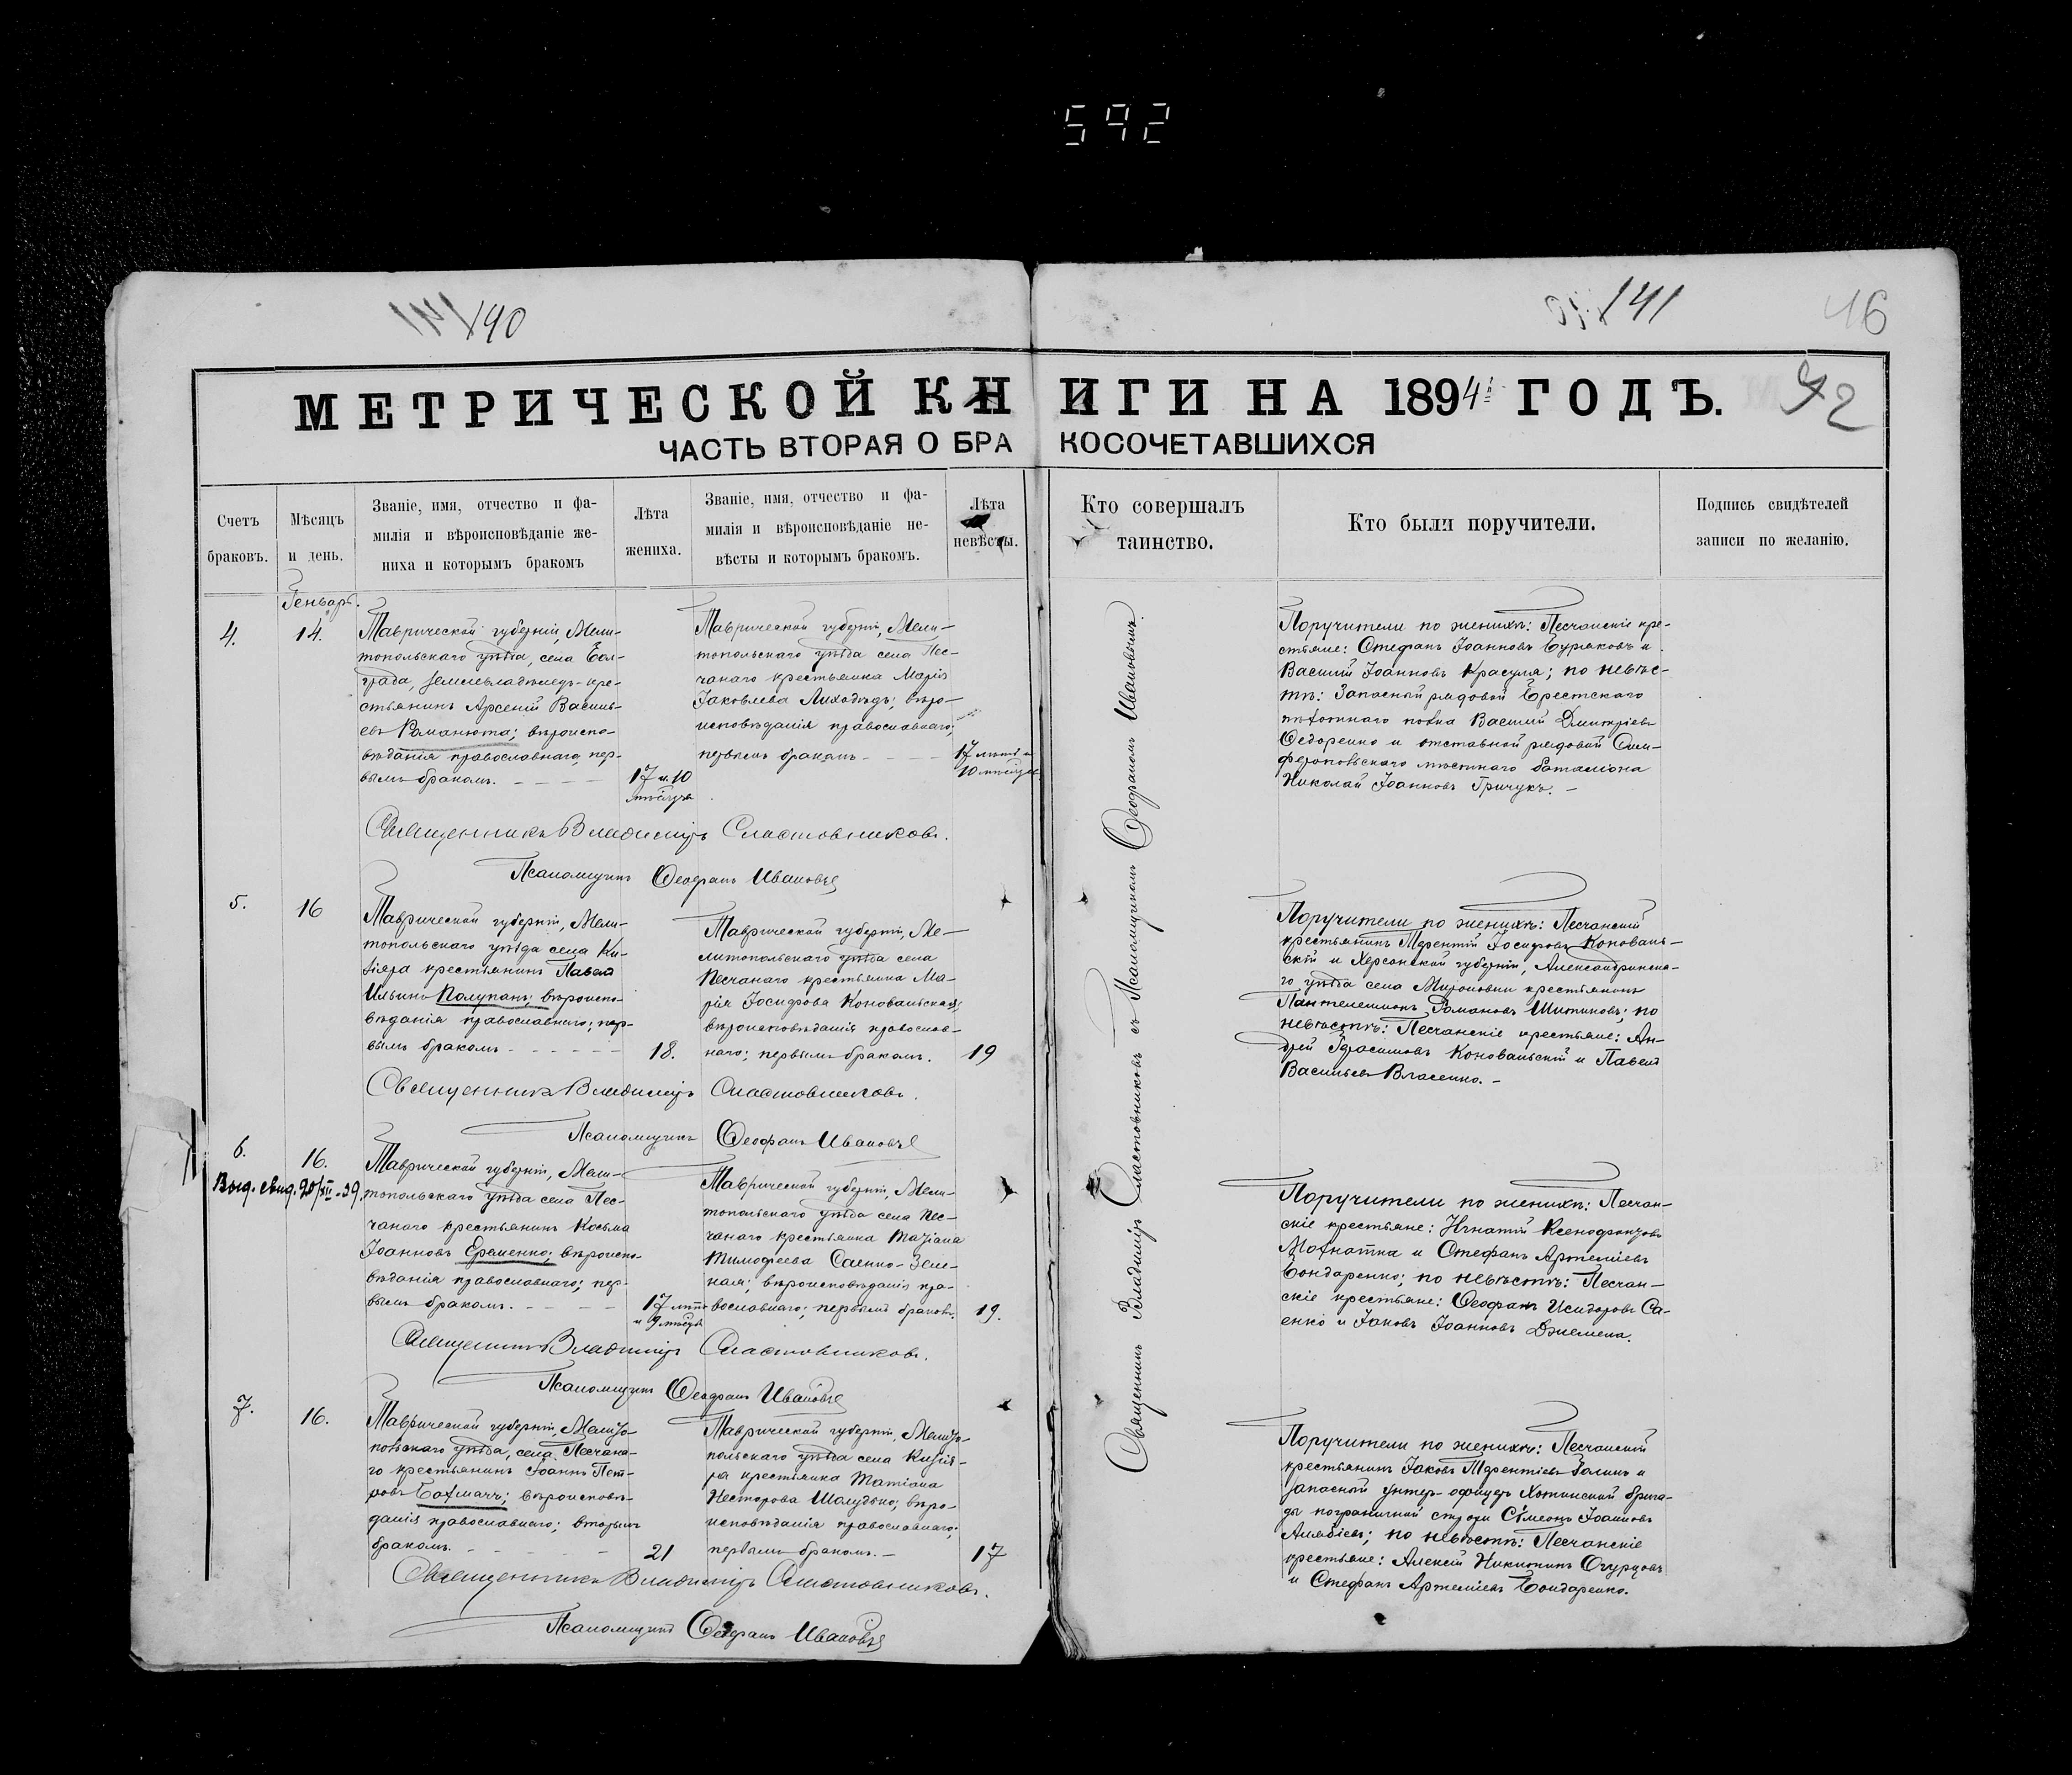 592
141 140
141
46
42
МЕТРИЧЕСКОЙ КНИГИ НА 1894й ГОДЪ.
ЧАСТЬ ВТОРАЯ О БРАКОСОЧЕТАВШИХСЯ
Счетъ браковъ.
Мѣсяцъ и день.
Званіе, имя, отчество и фа-
милія и вѣроисповѣданіе же-
ниха и которымъ бракомъ
Лѣта
жениха.
Званіе, имя, отчество и фа-
милія и вѣроисповѣданіе не-
вѣсты и которымъ бракомъ.
Лѣта
невѣсты.
Кто совершалъ
таинство.
Кто были поручители.
Подпись свидѣтелей
записи по желанію.
Генварь.
4.
14.
Таврической губерніи, Мели-
топольскаго уѣзда, села Бол-
града, землевладѣлецъ-кре-
стьянинъ Арсеній Василь-
евъ Романюта; вѣроиспо-
вѣданія православнаго, пер-
вымъ бракомъ.
17 и 10
мѣсяцевъ
Таврической губерніи, Мели-
топольскаго уѣзда села Пес-
чанаго крестьянка Марія
Іаковлева Лиходѣдъ; вѣро-
исповѣданія православнаго;
первымъ бракомъ
17 лѣтъ и
10 мѣсяцев
Поручители по женихѣ: Песчанскіе кре-
стьяне: Стефанъ Іоанновъ Буряковъ и
Василій Іоанновъ Красуля; по невѣс-
тѣ: Запасный рядовой Брестскаго
пѣхотнаго полка Василій Дмитріевъ
Федоренко и отставной рядовой Сим-
феропольскаго мѣстнаго баталіона
Николай Іоанновъ Гричукъ.
Священникъ Владиміръ Сластовниковъ.
Псаломщикъ Ѳеофанъ Ивановъ
5.
16
Таврической губерніи, Мели-
топольскаго уѣзда села Ки-
зіяра крестьянинъ Павелъ
Ильинъ Полупанъ; вѣроиспо-
вѣданія православнаго; пер-
вымъ бракомъ
18.
Таврической губерніи, Ме-
литопольскаго уѣзда села
Песчанаго крестьянка Ма-
рія Іосифова Коновальская;
вѣроисповѣданія православ-
наго; первымъ бракомъ.
19
Поручители по женихѣ: Песчанскій
крестьянинъ Терентій Іосифовъ Коноваль-
скій и Херсонской губерніи, Александрійска-
го уѣзда села Мироновки крестьянинъ
Пантелеимонъ Романовъ Шитиковъ; по
невѣстѣ: Песчанскіе крестьяне: Ан-
дрей Герасимовъ Коновальскій и Павелъ
Васильевъ Власенко.
Священникъ Владиміръ Сластовниковъ.
Псаломщикъ Ѳеофанъ Ивановъ
6.
16.
Выд. свид. 20/XII-39.
Таврической губерніи, Мели-
топольскаго уѣзда села Пес-
чанаго крестьянинъ Косьма
Іоанновъ Еременко; вѣроиспо-
вѣданія православнаго; пер-
вымъ бракомъ.
17 лѣтъ
и 9 мѣсяцев
Таврической губерніи, Мели-
топольскаго уѣзда села Пес-
чанаго крестьянка Татіана
Тимофеева Саенко-Зеле-
ная; вѣроисповѣданія пра-
вославнаго; первымъ бракомъ.
19.
Поручители по женихѣ: Песчан-
скіе крестьяне: Игнатій Ксенофонтовъ
Мохнатка и Стефанъ Артеміевъ
Бондаренко; по невѣстѣ: Песчан-
скіе крестьяне: Ѳеофанъ Исидоровъ Са-
енко и Іаковъ Іоанновъ Джемела.
Священникъ Владиміръ Сластовниковъ.
Псаломщикъ Ѳеофанъ Ивановъ
7.
16.
Таврической губерніи, Мелито-
польскаго уѣзда, села Песчана-
го крестьянинъ Іоаннъ Пет-
ровъ Бахмачъ; вѣроисповѣ-
данія православнаго; вторымъ
бракомъ.
21
Таврической губерніи, Мелито-
польскаго уѣзда села Кизія-
ра крестьянка Татіана
Несторова Шалудько; вѣро-
исповѣданія православнаго;
первымъ бракомъ.
17
Поручители по женихѣ: Песчанскій
крестьянинъ Іаковъ Терентіевъ Галичъ и
запасной унтеръ-офицеръ Хотинской брига-
ды пограничной стражи Симеонъ Іоанновъ
Алябіевъ; по невѣстѣ: Песчанскіе
крестьяне: Алексѣй Никитинъ Огурцовъ
и Стефанъ Артеміевъ Бондаренко.
Священникъ Владиміръ Сластовниковъ.
Псаломщикъ Ѳеофанъ Ивановъ
Священникъ Владиміръ Сластовниковъ съ Псаломщикомъ Ѳеофаномъ Ивановымъ.